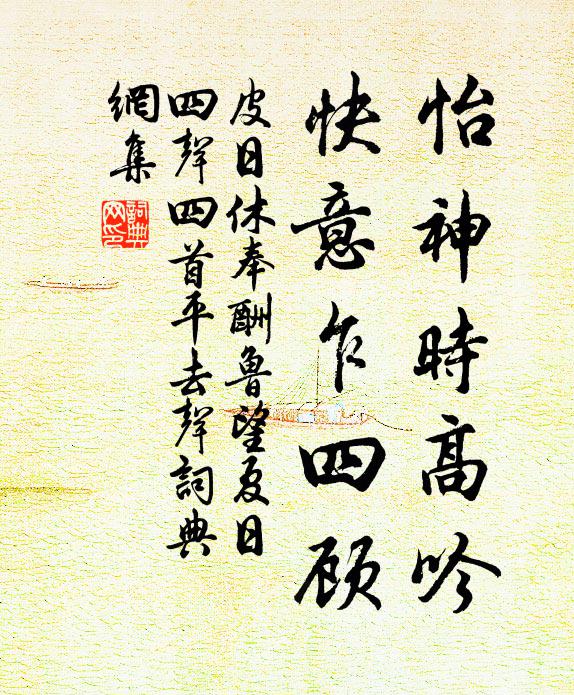 怡神時高吟
快意乍四顾
皮日休奉酬鲁望夏日
四聲四首平去聲詞典
網集
詞典网印